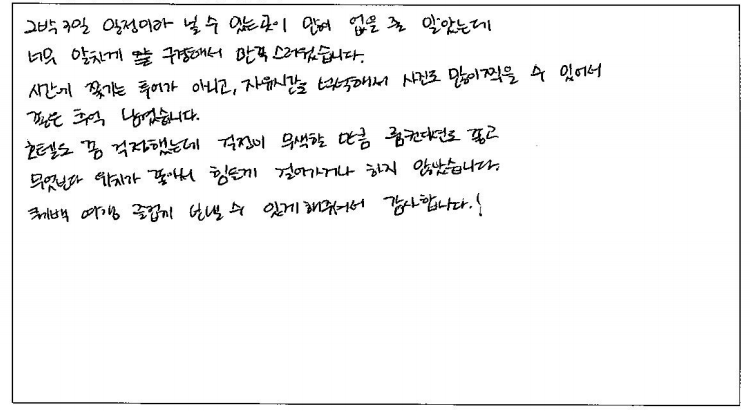 2박3일 일정이라 볼 수 있는곳이 많이 없을 줄 알았는데
너무 알차게 잘 구경해서 만족스러웠습니다.
시간에 쫓기는 투어가 아니고, 자유시간을 넉넉해서 사진도 많이찍을 수 있어서
좋은 추억 남겼습니다.
호텔도 꽤 걱정했는데 걱정이 무색할 만큼 룸컨디션도 좋고
무엇보다 위치가 좋아서 힘들게 걸어가거나 하지 않았습니다.
퀘백 여행 즐겁게 보낼 수 있게해주셔서 감사합니다.!